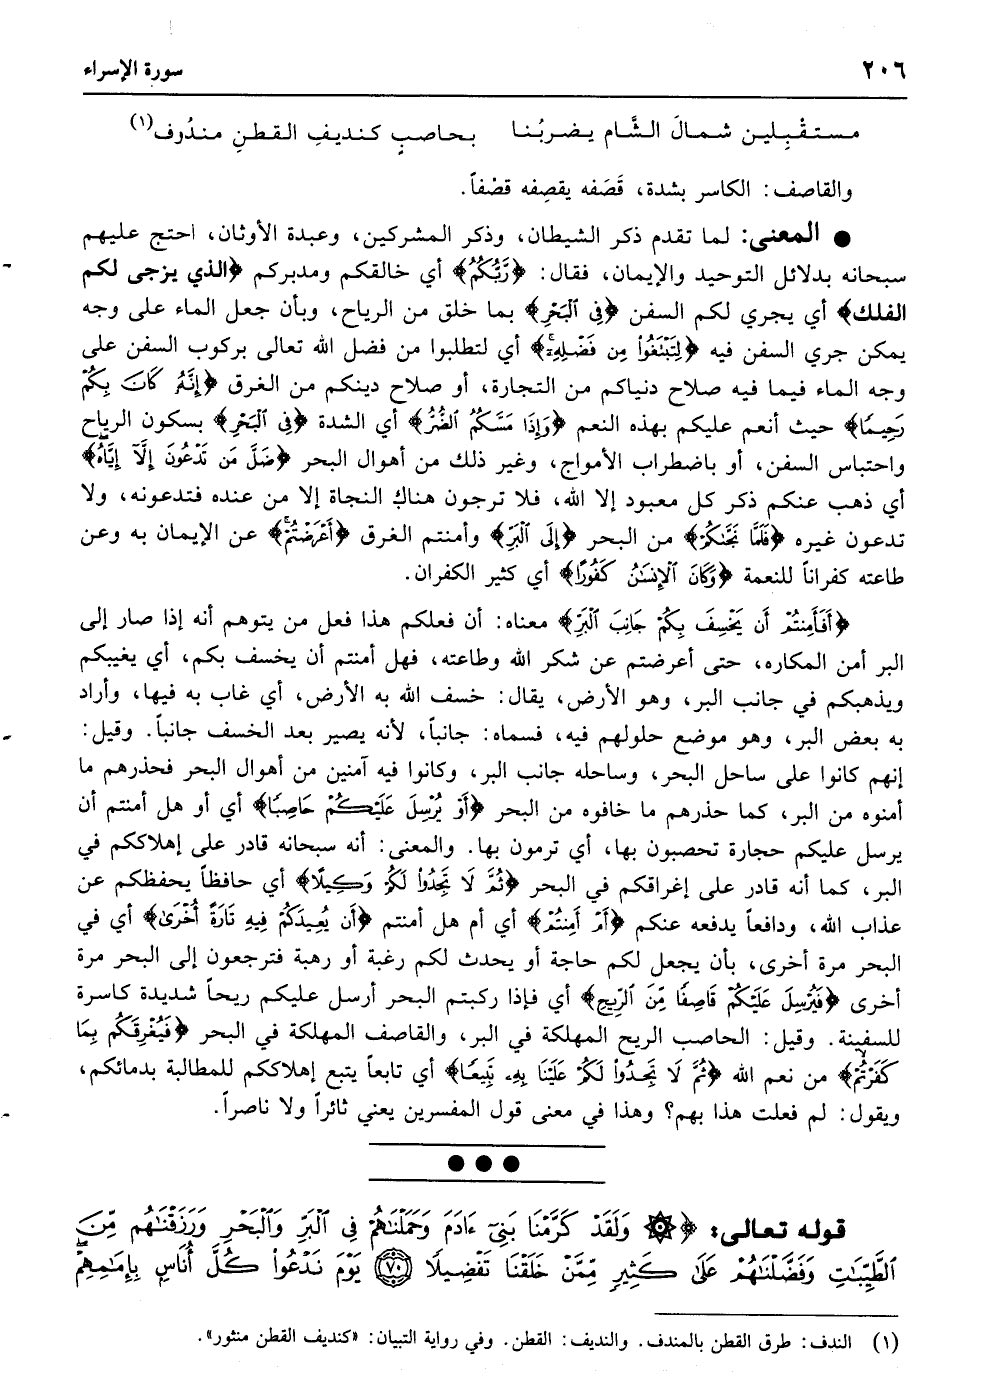 ٢٠٦
سورة الإسراء
مستقْبِلين شمالَ الشَّام يضربُنا بحاصبٍ كنديفِ القطنِ مندُوف(١)
والقاصف: الكاسر بشدة، قَصَفه يقصِفه قصْفاً.
● المعنى: لما تقدم ذكر الشيطان، وذكر المشركين، وعبدة الأوثان، احتج عليهم
سبحانه بدلائل التوحيد والإيمان، فقال: ﴿رَّبُّكُمُ﴾ أي خالقكم ومدبركم ﴿الذي يزجى لكم
الفلك﴾ أي يجري لكم السفن ﴿فِي الْبَحْرِ﴾ بما خلق من الرياح، وبأن جعل الماء على وجه
يمكن جري السفن فيه ﴿لِتَبْتَغُوا۟ مِن فَضْلِهِۦٓ﴾ أي لتطلبوا من فضل الله تعالى بركوب السفن على
وجه الماء فيما فيه صلاح دنياكم من التجارة، أو صلاح دينكم من الغرق ﴿إِنَّهُۥ كَانَ بِكُمْ
رَحِيمًا﴾ حيث أنعم عليكم بهذه النعم ﴿وَإِذَا مَسَّكُمُ ٱلضُّرُّ﴾ أي الشدة ﴿فِي ٱلْبَحْرِ﴾ بسكون الرياح
واحتباس السفن، أو باضطراب الأمواج، وغير ذلك من أهوال البحر ﴿ضَلَّ مَن تَدْعُونَ إِلَّآ إِيَّاهُ﴾
أي ذهب عنكم ذكر كل معبود إلا الله، فلا ترجون هناك النجاة إلا من عنده فتدعونه، ولا
تدعون غيره ﴿فَلَمَّا نَجَّىٰكُمْ﴾ من البحر ﴿إِلَى ٱلْبَرِّ﴾ وأمنتم الغرق ﴿أَعْرَضْتُمْ﴾ عن الإيمان به وعن
طاعته كفراناً للنعمة ﴿وَكَانَ ٱلْإِنسَٰنُ كَفُورًا﴾ أي كثير الكفران.
﴿أَفَأَمِنتُمْ أَن يَخْسِفَ بِكُمْ جَانِبَ ٱلْبَرِّ﴾ معناه: أن فعلكم هذا فعل من يتوهم أنه إذا صار إلى
البر أمن المكاره، حتى أعرضتم عن شكر الله وطاعته، فهل أمنتم أن يخسف بكم، أي يغيبكم
ويذهبكم في جانب البر، وهو الأرض، يقال: خسف الله به الأرض، أي غاب به فيها، وأراد
به بعض البر، وهو موضع حلولهم فيه، فسماه: جانباً، لأنه يصير بعد الخسف جانباً. وقيل:
إنهم كانوا على ساحل البحر، وساحله جانب البر، وكانوا فيه آمنين من أهوال البحر فحذرهم ما
أمنوه من البر، كما حذرهم ما خافوه من البحر ﴿أَوْ يُرْسِلَ عَلَيْكُمْ حَاصِبًا﴾ أي أو هل أمنتم أن
يرسل عليكم حجارة تحصبون بها، أي ترمون بها. والمعنى: أنه سبحانه قادر على إهلاككم في
البر، كما أنه قادر على إغراقكم في البحر ﴿ثُمَّ لَا تَجِدُوا۟ لَكُمْ وَكِيلًا﴾ أي حافظاً يحفظكم عن
عذاب الله، ودافعاً يدفعه عنكم ﴿أَمْ أَمِنتُمْ﴾ أي أم هل أمنتم ﴿أَن يُعِيدَكُمْ فِيهِ تَارَةً أُخْرَىٰ﴾ أي في
البحر مرة أخرى، بأن يجعل لكم حاجة أو يحدث لكم رغبة أو رهبة فترجعون إلى البحر مرة
أخرى ﴿فَيُرْسِلَ عَلَيْكُمْ قَاصِفًا مِّنَ ٱلرِّيحِ﴾ أي فإذا ركبتم البحر أرسل عليكم ريحاً شديدة كاسرة
للسفينة. وقيل: الحاصب الريح المهلكة في البر، والقاصف المهلكة في البحر ﴿فَيُغْرِقَكُم بِمَا
كَفَرْتُمْ﴾ من نعم الله ﴿ثُمَّ لَا تَجِدُوا۟ لَكُمْ عَلَيْنَا بِهِۦ تَبِيعًا﴾ أي تابعاً يتبع إهلاككم للمطالبة بدمائكم،
ويقول: لم فعلت هذا بهم؟ وهذا في معنى قول المفسرين يعني ثائراً ولا ناصراً.
● ● ●
قوله تعالى: ﴿۞ وَلَقَدْ كَرَّمْنَا بَنِىٓ ءَادَمَ وَحَمَلْنَٰهُمْ فِى ٱلْبَرِّ وَٱلْبَحْرِ وَرَزَقْنَٰهُم مِّنَ
ٱلطَّيِّبَٰتِ وَفَضَّلْنَٰهُمْ عَلَىٰ كَثِيرٍ مِّمَّنْ خَلَقْنَا تَفْضِيلًا ٧٠ يَوْمَ نَدْعُوا۟ كُلَّ أُنَاسٍۭ بِإِمَٰمِهِمْ
(١) الندف: طرق القطن بالمندف. والنديف: القطن. وفي رواية التبيان: «كنديف القطن منثور».